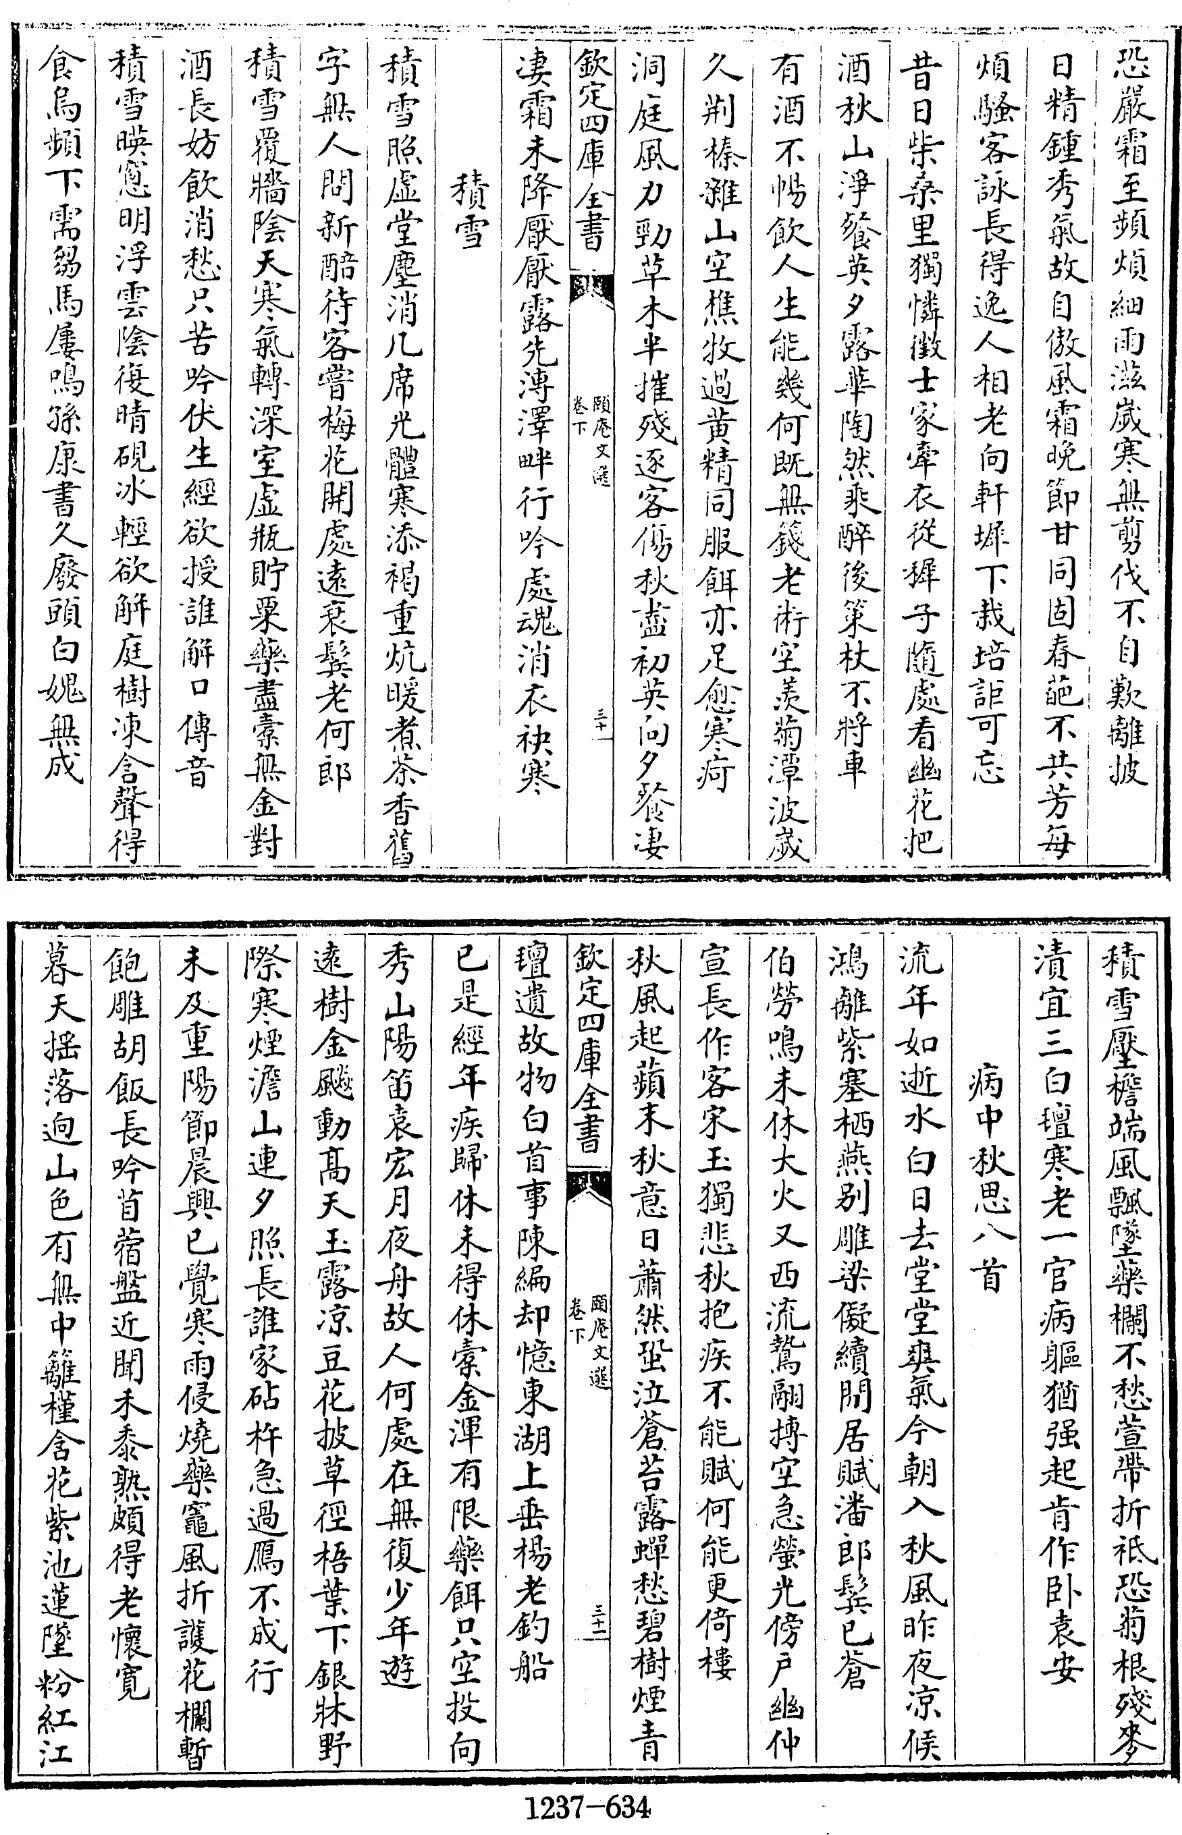 恐嚴霜至頻煩細雨滋歲寒無剪伐不自歎離披
日精鍾秀氣故自傲風霜晚節甘同固春葩不共芳每
煩騷客詠長得逸人相老向軒墀下栽培詎可忘
昔日柴桑里獨憐徵士家牽衣從穉子隨處看幽花把
酒秋山淨餐英夕露華陶然乘醉後策杖不將車
有酒不暢飲人生能幾何既無錢老術空羡菊潭波歲
久荆榛雜山空樵牧過黄精同服餌亦足愈寒疴
洞庭風力勁草木半摧殘逐客傷秋盡初英向夕餐凄
欽定四庫全書
頤庵文選
卷下
三十一
凄霜未降厭厭露先漙澤畔行吟處魂消衣袂寒
積雪
積雪照虛堂塵消几席光體寒添褐重炕暖煮茶香舊
字無人問新醅待客嘗梅花開處遠衰鬢老何郎
積雪覆牆陰天寒氣轉深室虛瓶貯粟藥盡橐無金對
酒長妨飲消愁只苦吟伏生經欲授誰解口傳音
積雪暎窻明浮雲陰復晴硯冰輕欲解庭樹凍含聲得
食烏頻下需芻馬屢鳴孫康書久廢頭白媿無成
積雪壓檐端風飄墜藥欄不愁萱帶折祇恐菊根殘麥
漬宜三白氊寒老一官病軀猶强起肯作卧袁安
病中秋思八首
流年如逝水白日去堂堂爽氣今朝入秋風昨夜凉候
鴻離紫塞栖燕别雕梁儗續閒居賦潘郎鬂已蒼
伯勞鳴未休大火又西流鷙翮摶空急螢光傍户幽仲
宣長作客宋玉獨悲秋抱疾不能賦何能更倚樓
秋風起蘋末秋意日蕭然蛩泣蒼苔露蟬愁碧樹煙青
欽定四庫全書
頤庵文選
卷下
三十二
氊遺故物白首事陳編却憶東湖上垂楊老釣船
已是經年疾歸休未得休橐金渾有限藥餌只空投向
秀山陽笛袁宏月夜舟故人何處在無復少年遊
遠樹金飈動髙天玉露凉豆花披草徑梧葉下銀牀野
際寒煙澹山連夕照長誰家砧杵急過鴈不成行
未及重陽節晨興已覺寒雨侵燒藥竈風折護花欄暫
飽雕胡飯長吟苜蓿盤近聞禾黍熟頗得老懷寬
暮天揺落逈山色有無中籬槿含花紫池蓮墜粉紅江
1237-634